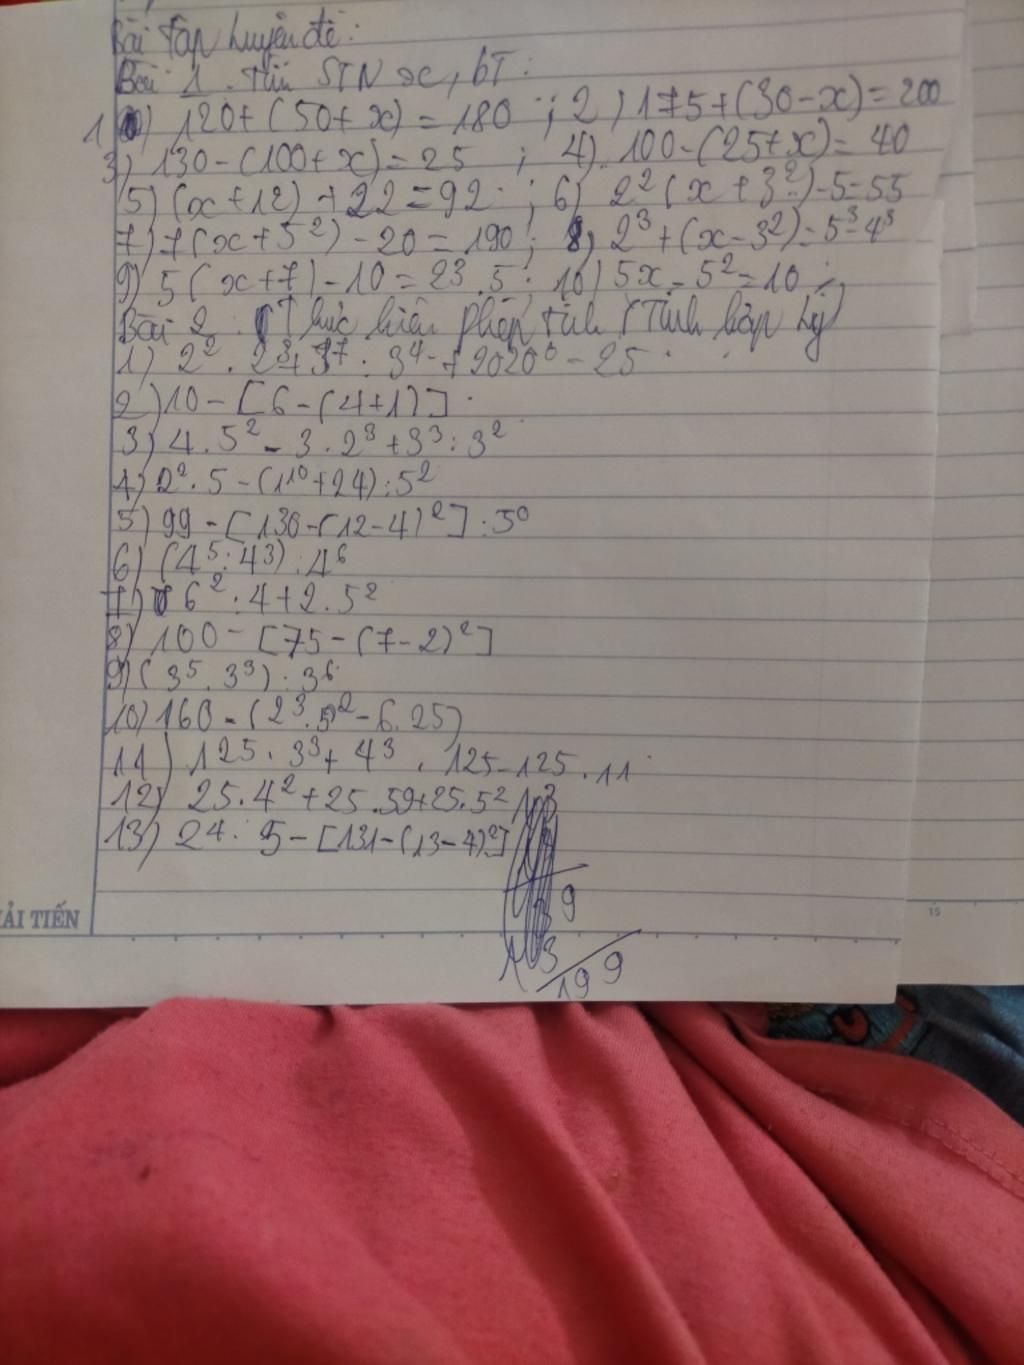 Bài tập luyện đề:
Bài 1. Tìm STN x, bT:
1) 120+(50+x)=180 ; 2) 175+(30-x)=200
3) 130-(100+x)=25 ; 4) 100-(25+x)=40
5) (x+12)+22=92 ; 6) 2²(x+3²)-5=55
7) 7(x+5²)-20=190 ; 8) 2³+(x-3²)=5³-4³
9) 5(x+7)-10=2³.5 ; 10) 5x-5²=10
Bài 2: Thực hiện phép tính (Tính hợp lý)
1) 2².2³+3⁷:3⁴+2020⁰-25
2) 10-[6-(4+1)]
3) 4.5²-3.2³+3³:3²
4) 2².5-(1¹⁰+24):5²
5) 99-[130-(12-4)²]:5⁰
6) (4⁵:4³).4⁶
7) 6²:4+2.5²
8) 100-[75-(7-2)²]
9) (3⁵.3³):3⁶
10) 160-(2³.5²-6.25)
11) 125.3³+4³.125-125.11
12) 25.4²+25.59+25.5²
13) 24.5-[131-(13-4)²]
9
3
199
ẢI TIẾN
15